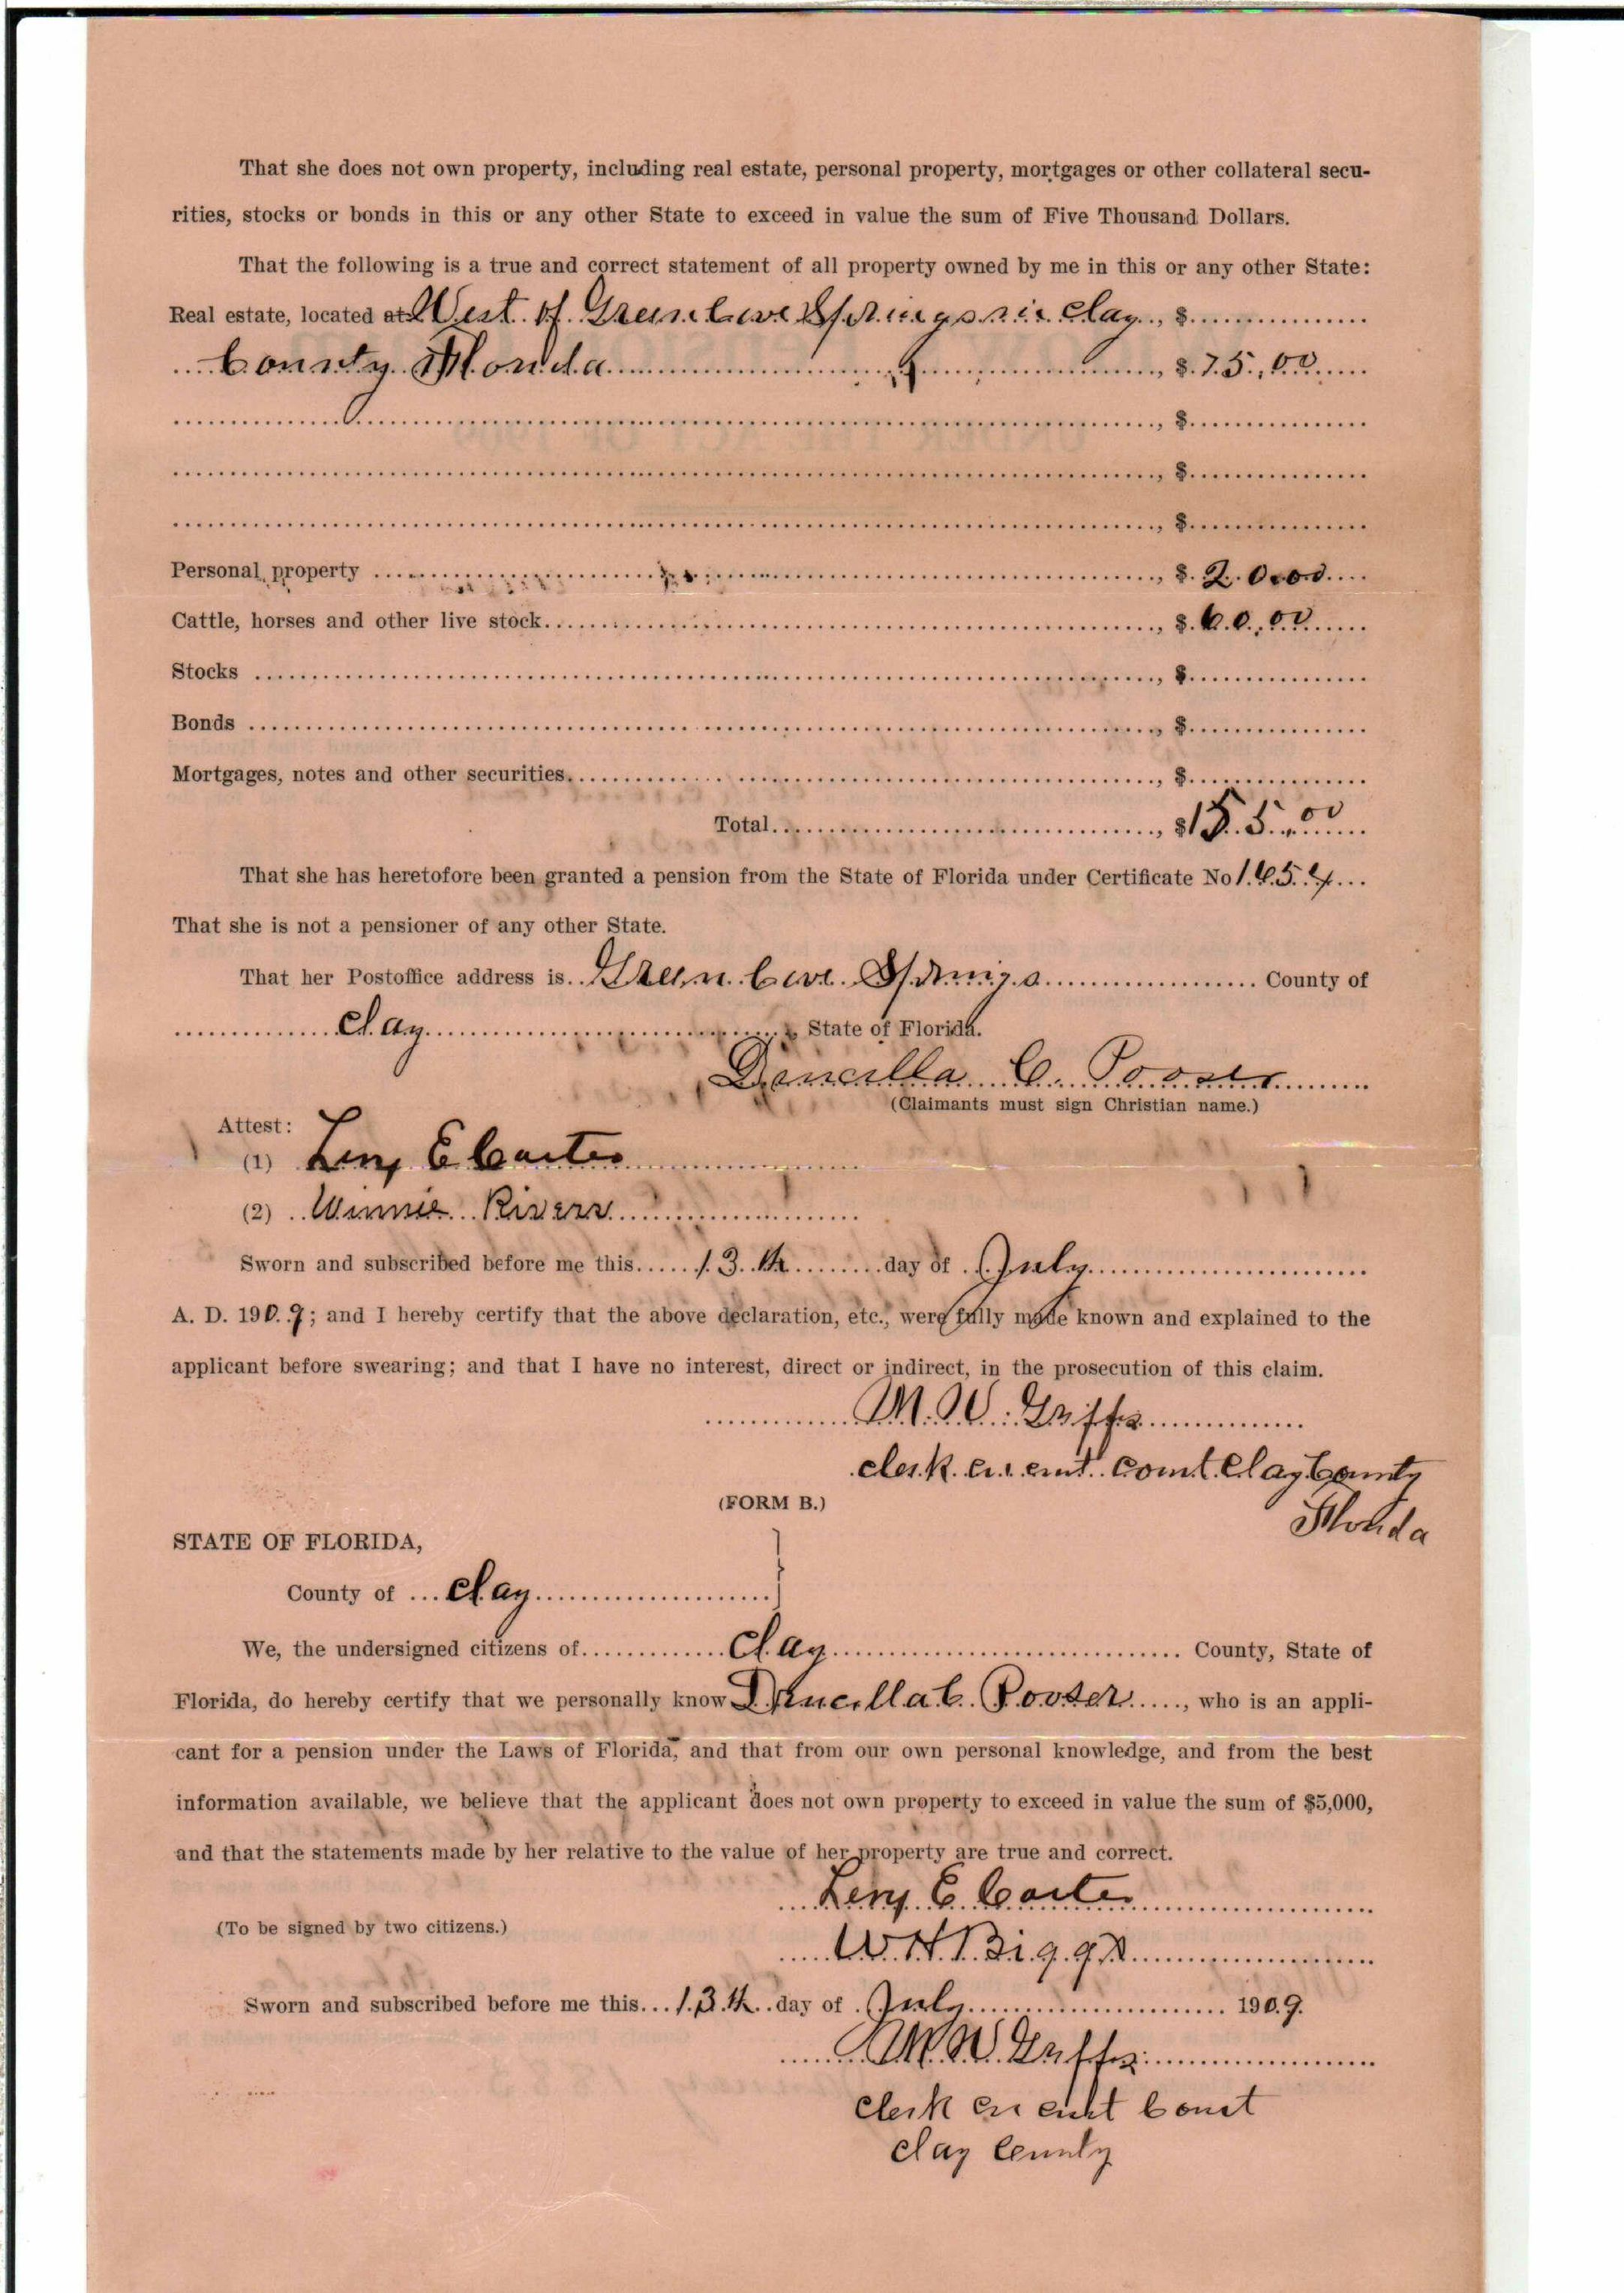 That she does not own property, including real estate, personal property, mortgages or other collateral secu-
rities, stocks or bonds in this or any other State to exceed in value the sum of Five Thousand Dollars.
That the following is a true and correct statement of all property owned by me in this or any other State:
Real estate, located at West of Green Cove Springs in Clay, $
County Florida, $75.00
, $
, $
, $
Personal property, $20.00
Cattle, horses and other live stock, $60.00
Stocks, $
Bonds, $
Mortgages, notes and other securities, $
Total, $155.00
That she has heretofore been granted a pension from the State of Florida under Certificate No
That she is not a pensioner of any other State.
That her Postoffice address is Green Cove Springs County of
Clay, State of Florida.
Drucilla C. Pooser
(Claimants must sign Christian name.)
Attest:
(1) E Carter
(2) Winnie Rivers
Sworn and subscribed before me this 13th day of July
A. D. 1909; and I hereby certify that the above declaration, etc., were fully made known and explained to the
applicant before swearing; and that I have no interest, direct or indirect, in the prosecution of this claim.
M. W. Griffis
clerk circuit court Clay County
Florida
(FORM B.)
STATE OF FLORIDA,
County of Clay
We, the undersigned citizens of Clay County, State of
Florida, do hereby certify that we personally know Drucilla C. Pooser, who is an appli-
cant for a pension under the Laws of Florida, and that from our own personal knowledge, and from the best
information available, we believe that the applicant does not own property to exceed in value the sum of $5,000,
and that the statements made by her relative to the value of her property are true and correct.
E Carter
(To be signed by two citizens.)
W. H. Biggs
Sworn and subscribed before me this 13th day of July 1909.
M. W. Griffis
Clerk circuit Court
Clay County